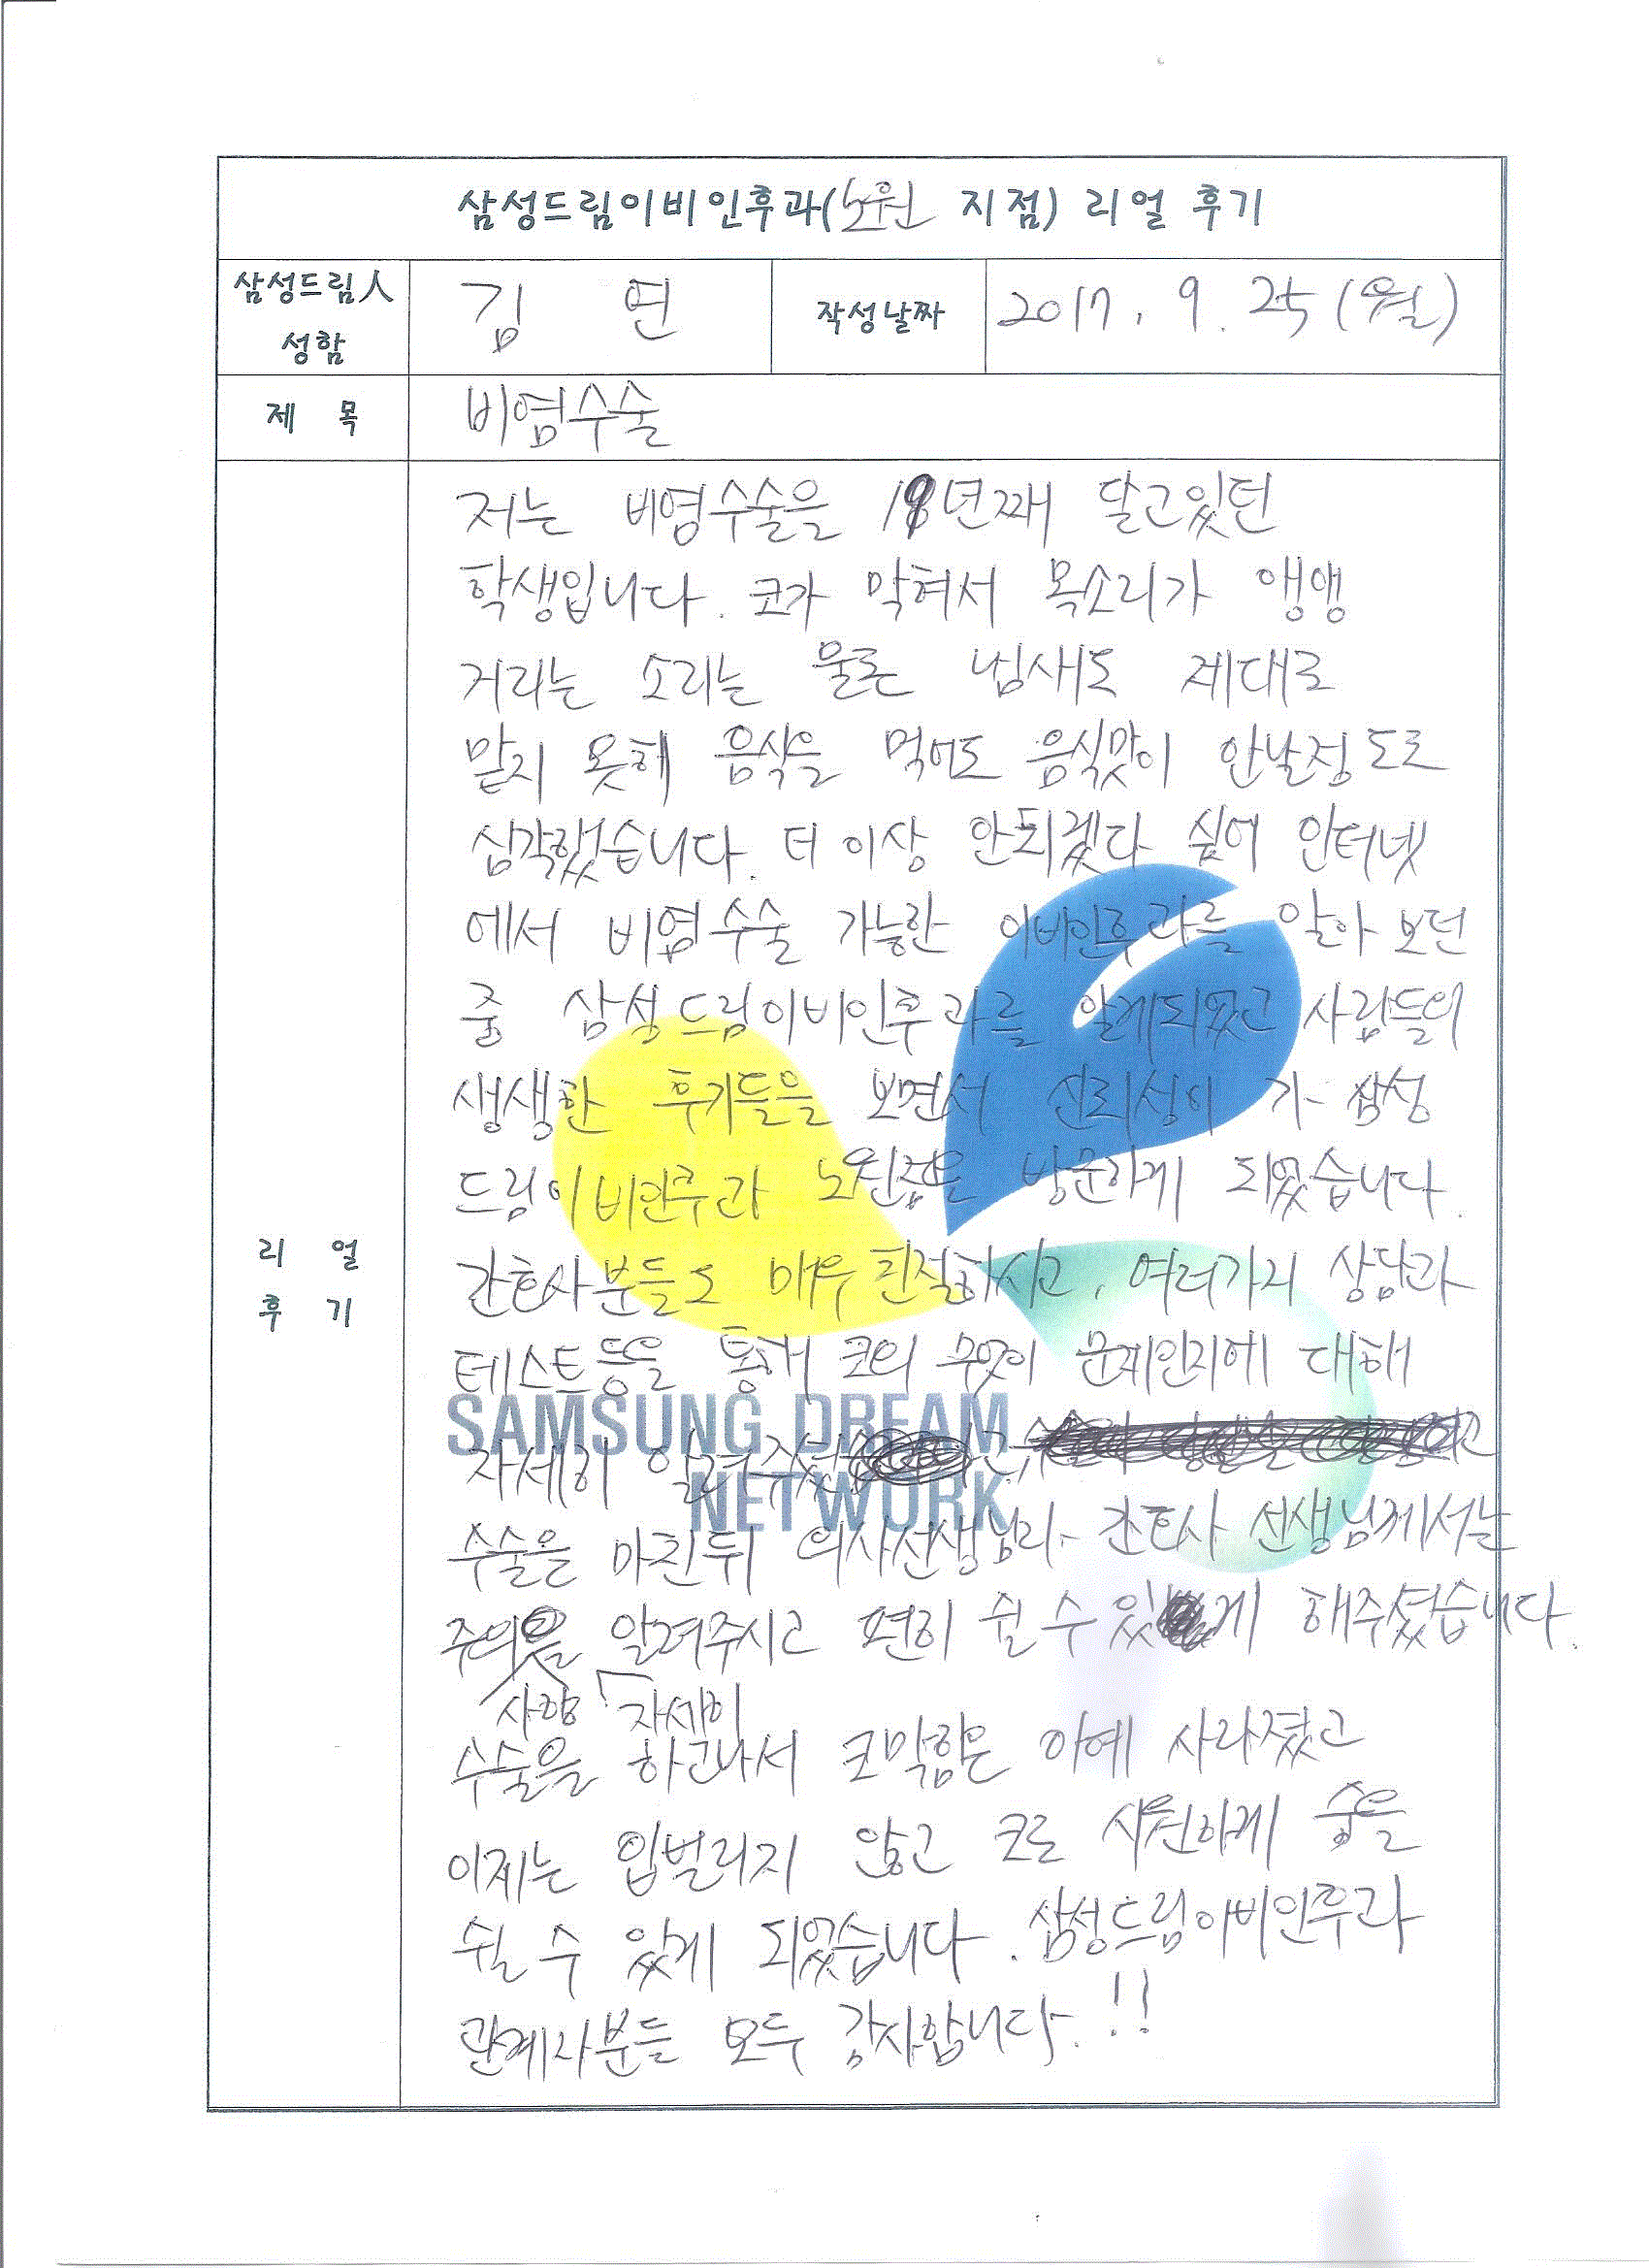 삼성드림이비인후과(노원 지점) 리얼 후기
삼성드림人 성함
김 연
작성날짜
2017. 9. 25 (월)
제 목
비염수술
리 얼 후 기
저는 비염수술을 18년째 달고있던
학생입니다. 코가 막혀서 목소리가 앵앵
거리는 소리는 물론 냄새도 제대로
맡지 못해 음식을 먹어도 음식맛이 안날정도로
심각했습니다. 더 이상 안되겠다 싶어 인터넷
에서 비염수술 가능한 이비인후과를 알아 보던
중 삼성드림이비인후과를 알게되었고 사람들의
생생한 후기들을 보면서 신뢰성이 가 삼성
드림이비인후과 노원점을 방문하게 되었습니다.
간호사분들도 매우 친절하시고, 여러가지 상담과
테스트등을 통해 코의 무엇이 문제인지에 대해
자세히 알려주셨고
수술을 마친뒤 의사선생님과 간호사 선생님께서는
주의사항을 자세히 알려주시고 편히 쉴 수 있게 해주셨습니다.
수술을 하고나서 코막힘은 아예 사라졌고
이제는 입벌리지 않고 코로 시원하게 숨을
쉴 수 있게 되었습니다. 삼성드림이비인후과
관계자분들 모두 감사합니다.!!
SAMSUNG DREAM
NETWORK